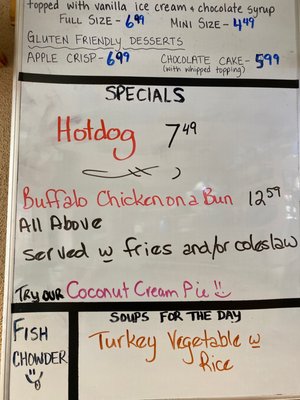 topped with vanilla ice cream + chocolate syrup
FULL SIZE - 6.99 MINI SIZE - 4.49
GLUTEN FRIENDLY DESSERTS
APPLE CRISP - 6.99 CHOCOLATE CAKE - 5.99
(with whipped topping)
SPECIALS
Hotdog 7.49
Buffalo Chicken on a Bun 12.59
All Above
served w fries and/or coleslaw
TRY OUR Coconut Cream Pie
FISH
CHOWDER
SOUPS FOR THE DAY
Turkey Vegetable w
Rice